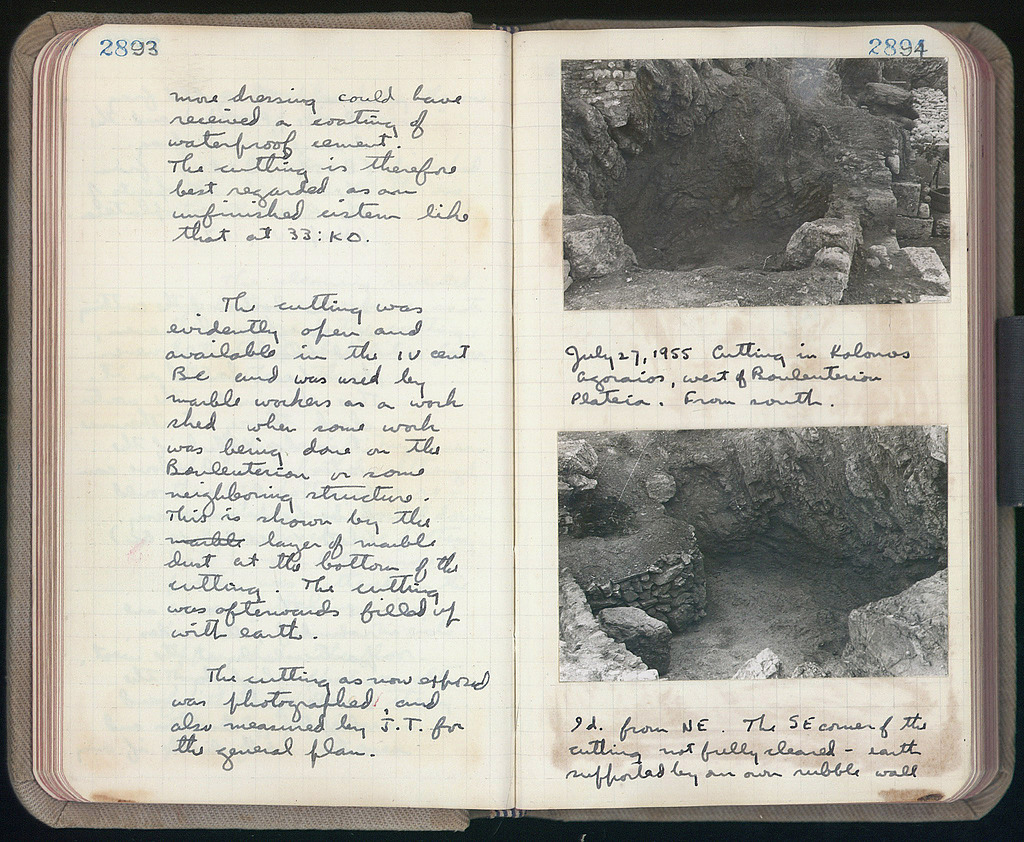 2893
more dressing could have
received a coating of
waterproof cement.
The cutting is therefore
best regarded as an
unfinished cistern like
that at 33:ΚΟ.
The cutting was
evidently open and
available in the IV cent
BC and was used by
marble workers as a work
shed when some work
was being done on the
Bouleuterion or some
neighboring structure.
This is shown by the
marble layer of marble
dust at the bottom of the
cutting. The cutting
was afterwards filled up
with earth.
The cutting as now exposed
was photographed, and
also measured by J.T. for
the general plan.
2894
July 27, 1955 Cutting in Kolonos
Agoraios, west of Bouleuterion
Plateia. From south.
Id. from NE. The SE corner of the
cutting not fully cleared - earth
supported by our own rubble wall